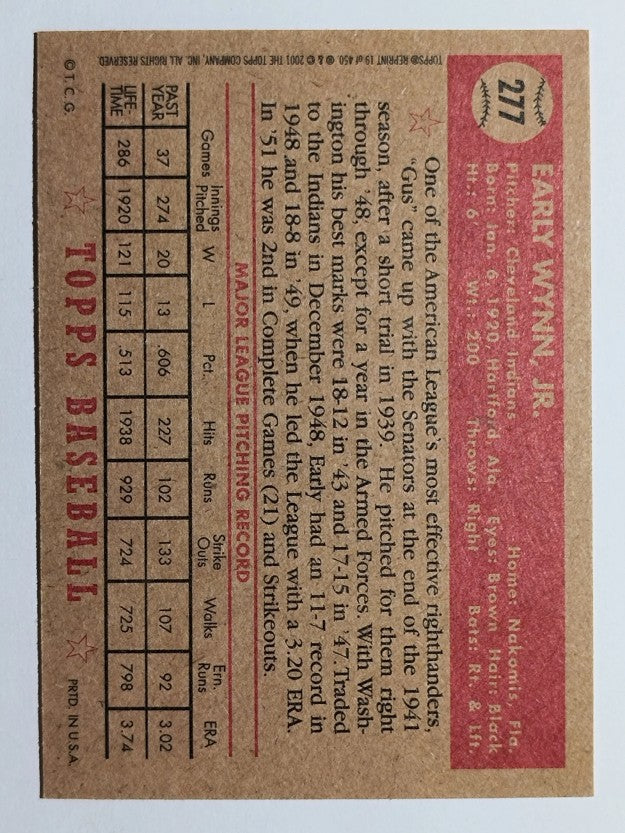 277
EARLY WYNN, JR.
Pitcher: Cleveland Indians Home: Nakomis, Fla.
Born: Jan. 6, 1920, Hartford, Ala. Eyes: Brown Hair: Black
Ht.: 6 Wt.: 200 Throws: Right Bats: Rt. & Lft.
One of the American League's most effective righthanders,
"Gus" came up with the Senators at the end of the 1941
season, after a short trial in 1939. He pitched for them right
through '48, except for a year in the Armed Forces. With Wash-
ington his best marks were 18-12 in '43 and 17-15 in '47. Traded
to the Indians in December 1948, Early had an 11-7 record in
1948 and 18-8 in '49, when he led the League with a 3.20 ERA.
In '51 he was 2nd in Complete Games (21) and Strikeouts.
MAJOR LEAGUE PITCHING RECORD
Games Innings Pitched W L Pct. Hits Runs Strike Outs Walks Ern. Runs ERA
PAST YEAR 37 274 20 13 .606 227 102 133 107 92 3.02
LIFE-TIME 286 1920 121 115 .513 1938 929 724 725 798 3.74
TOPPS BASEBALL
© T. C. G.
PRTD. IN U.S.A.
TOPPS® REPRINT 19 of 450. ® & © 2001 THE TOPPS COMPANY, INC. ALL RIGHTS RESERVED